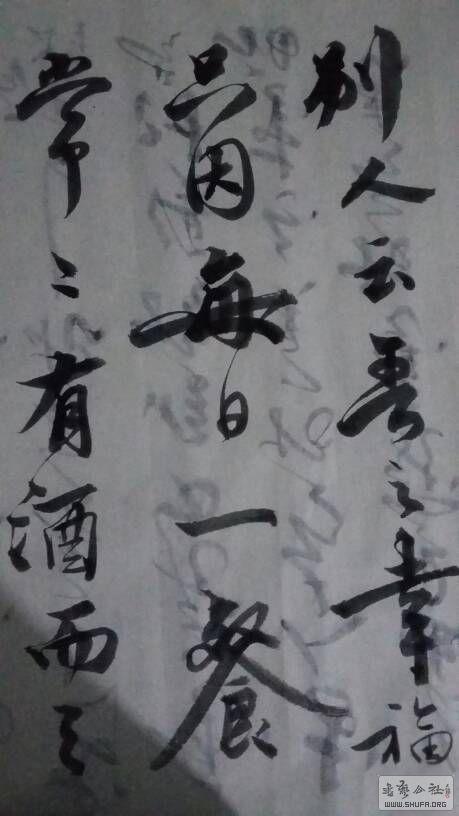 别人云吾之幸福
只因每日一餐
常〻有酒而已
书艺公社
WWW.SHUFA.ORG